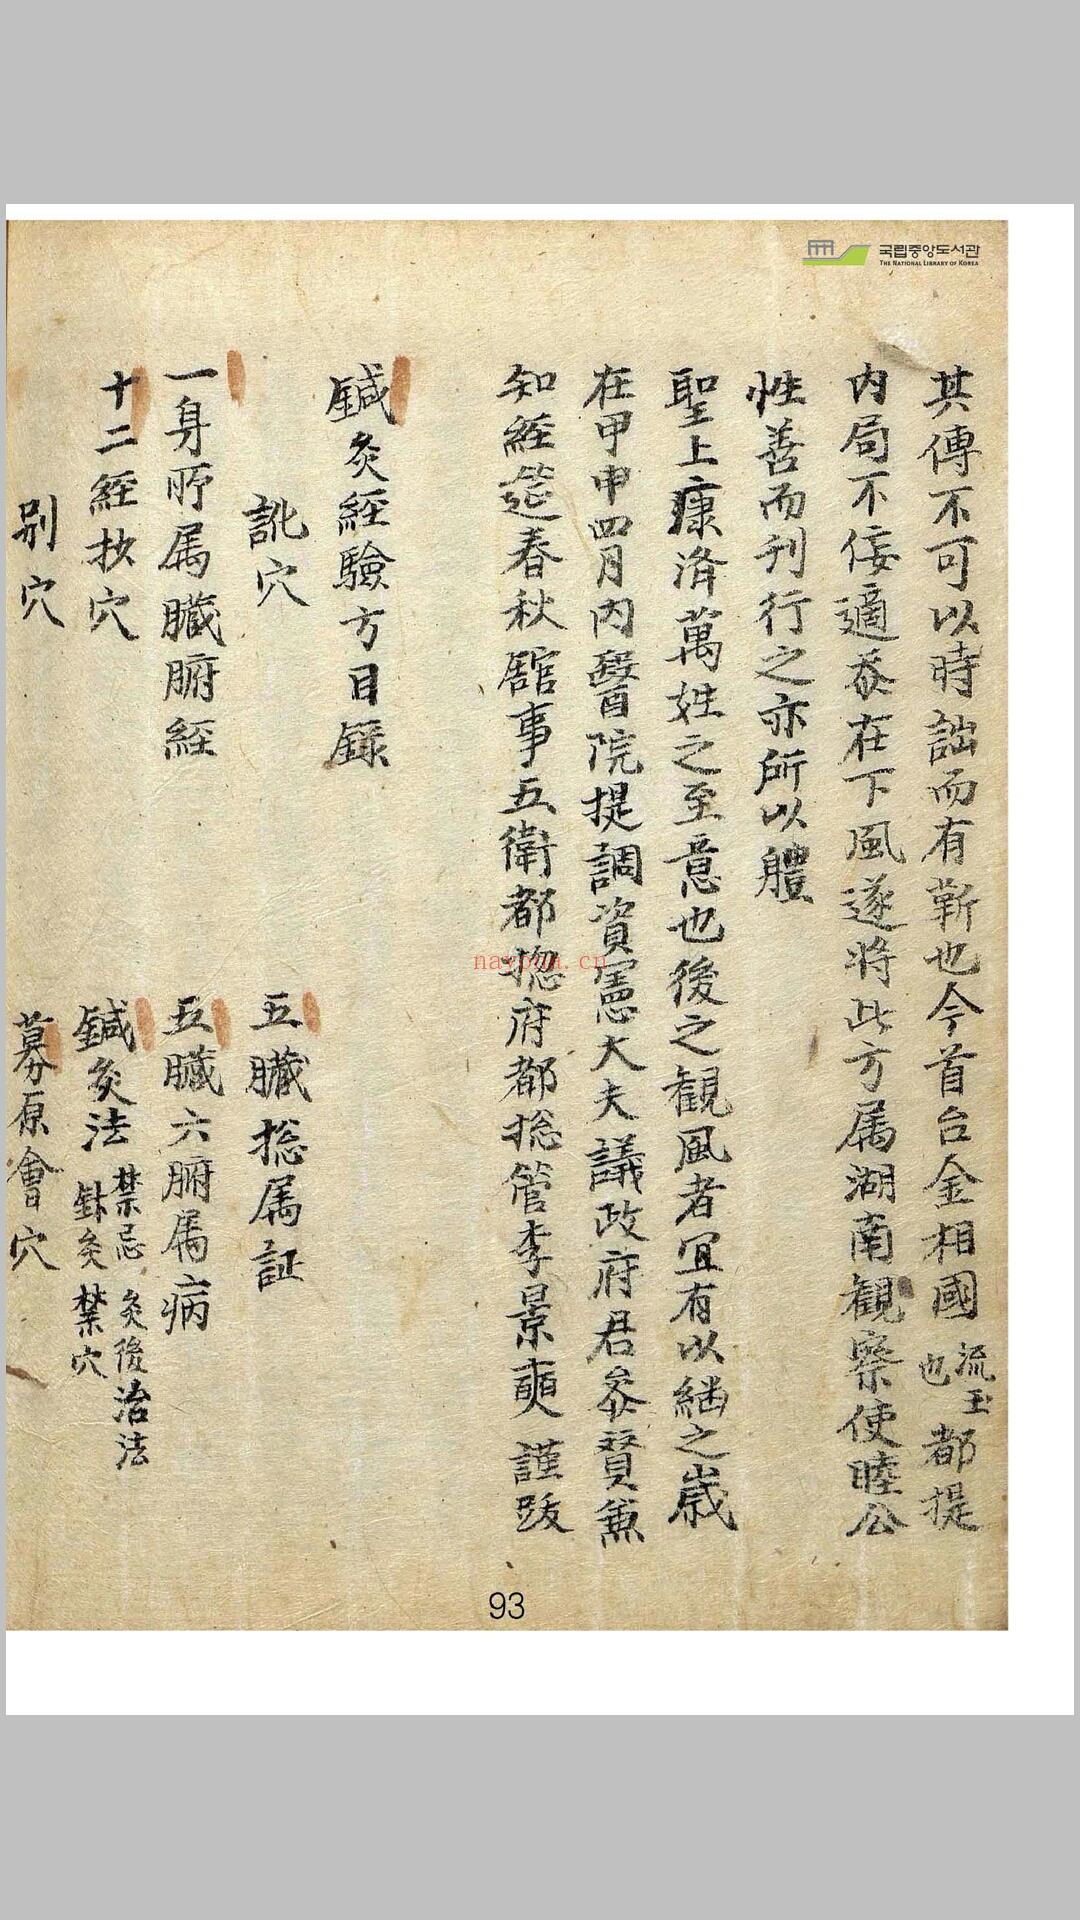 국립중앙도서관
THE NATIONAL LIBRARY OF KOREA
其傳不可以時詘而有靳也今首台金相國流也玉都提
内局不佞適忝在下風遂將此方属湖南觀察使睦公
性善而刊行之亦所以軆
聖上康濟萬姓之至意也後之觀風者宜有以緬之歲
在甲申四月内醫院提調資憲大夫議政府右參贊兼
知經筵春秋舘事五衛都摠府都摠管李景奭謹跋
鍼灸經驗方目錄
訛穴
五臟摠属証
一身所属臟腑經
五臟六腑属病
十二經抄穴
鍼灸法 禁忌 灸後治法
鍼灸禁穴
别穴
募原會穴
nayona.cn
93